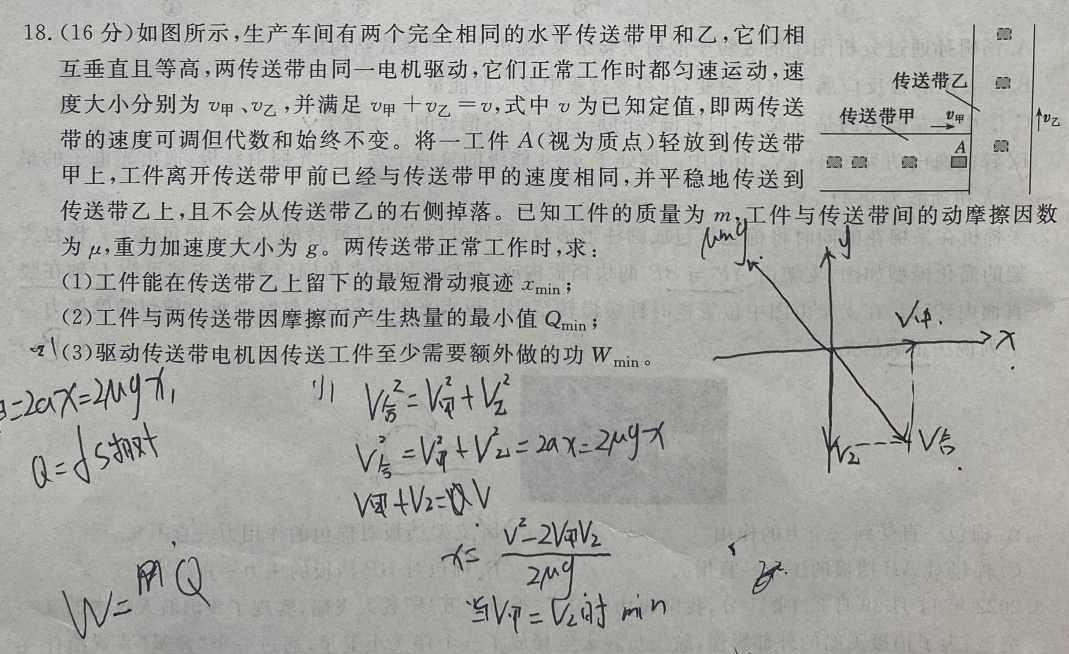 18.(16分)如图所示,生产车间有两个完全相同的水平传送带甲和乙,它们相
互垂直且等高,两传送带由同一电机驱动,它们正常工作时都匀速运动,速
度大小分别为 v甲、v乙,并满足 v甲+v乙=v,式中 v 为已知定值,即两传送
带的速度可调但代数和始终不变。将一工件 A(视为质点)轻放到传送带
甲上,工件离开传送带甲前已经与传送带甲的速度相同,并平稳地传送到
传送带乙上,且不会从传送带乙的右侧掉落。已知工件的质量为 m,工件与传送带间的动摩擦因数
为 μ,重力加速度大小为 g。两传送带正常工作时,求:
(1)工件能在传送带乙上留下的最短滑动痕迹 xmin;
(2)工件与两传送带因摩擦而产生热量的最小值 Qmin;
(3)驱动传送带电机因传送工件至少需要额外做的功 Wmin。
传送带乙
传送带甲
v甲
A
v乙
μmg
y
V甲
x
V乙
V合
=2ax=2μgx₁
Q=fS相对
W=
Q
(1)
V合²=V甲²+V乙²
V合²=V甲²+V乙²=2ax=2μgx
V甲+V乙=V
x=
V²-2V甲V乙
2μg
当V甲=V乙时 min